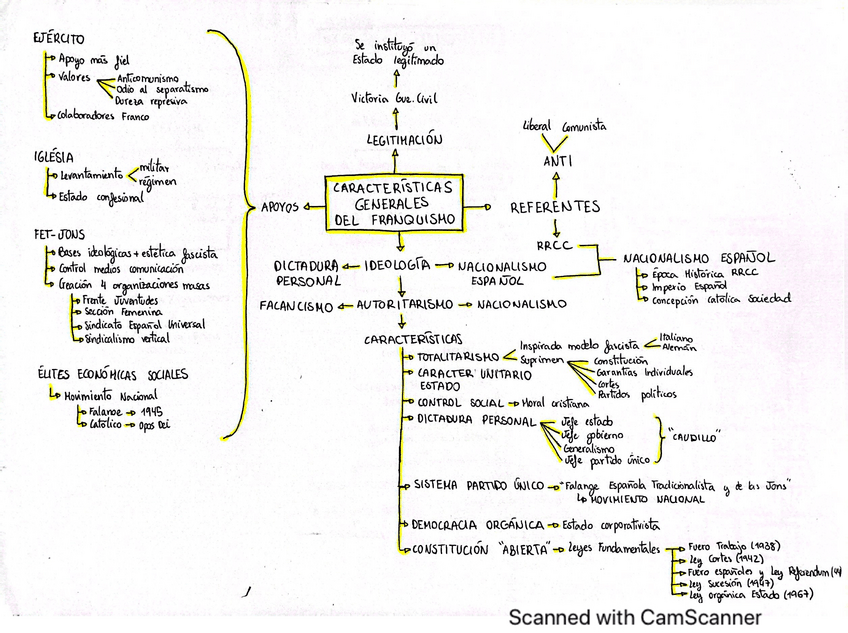 EJÉRCITO
Apoyo más fiel
Valores
Anticomunismo
Odio al separatismo
Dureza represiva
Colaboradores Franco
IGLÉSIA
Levantamiento
militar
régimen
Estado confesional
FET-JONS
Bases ideológicas + estética fascista
Control medios comunicación
Creación 4 organizaciones masas
Frente Juventudes
Sección Femenina
Sindicato Español Universal
Sindicalismo vertical
ÉLITES ECONÓMICAS SOCIALES
Movimiento Nacional
Falange → 1945
Católico → Opus Dei
APOYOS
Se instituyó un
Estado legitimado
Victoria Gue. Civil
LEGITIMACIÓN
CARACTERÍSTICAS
GENERALES
DEL FRANQUISMO
Liberal Comunista
ANTI
REFERENTES
RRCC
NACIONALISMO ESPAÑOL
Época Histórica RRCC
Imperio Español
Concepción católica Sociedad
DICTADURA
PERSONAL
IDEOLOGÍA
NACIONALISMO
ESPAÑOL
FALANCISMO
AUTORITARISMO
NACIONALISMO
CARACTERÍSTICAS
TOTALITARISMO
Inspirada modelo fascista
Italiano
Alemán
Suprimen
Constitución
Garantías Individuales
Cortes
Partidos políticos
CARACTER UNITARIO
ESTADO
CONTROL SOCIAL → Moral cristiana
DICTADURA PERSONAL
Jefe estado
Jefe gobierno
Generalismo
Jefe partido único
"CAUDILLO"
SISTEMA PARTIDO ÚNICO → "Falange Española Tradicionalista y de las Jons"
MOVIMIENTO NACIONAL
DEMOCRACIA ORGÁNICA → Estado corporativista
CONSTITUCIÓN "ABIERTA" → Leyes Fundamentales
Fuero Trabajo (1938)
Ley Cortes (1942)
Fuero españoles y Ley Referendum
Ley Sucesión (1947)
Ley orgánica Estado (1967)
Scanned with CamScanner